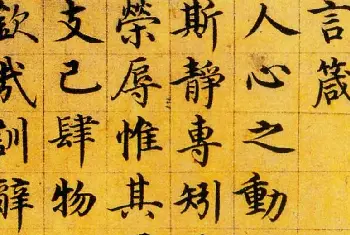 言箴
人心之動
斯靜專矧
榮辱惟其
支己肆物
欽哉訓辭